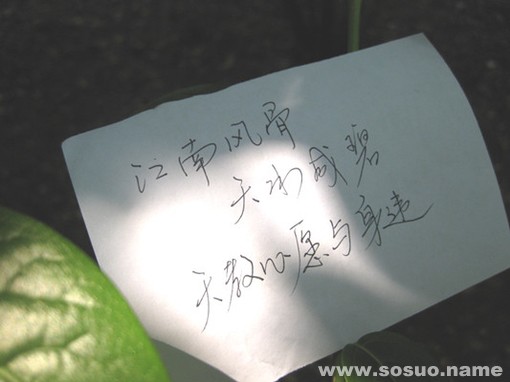 江南风骨
天水成碧
天教心愿与身违
www.sosuo.name